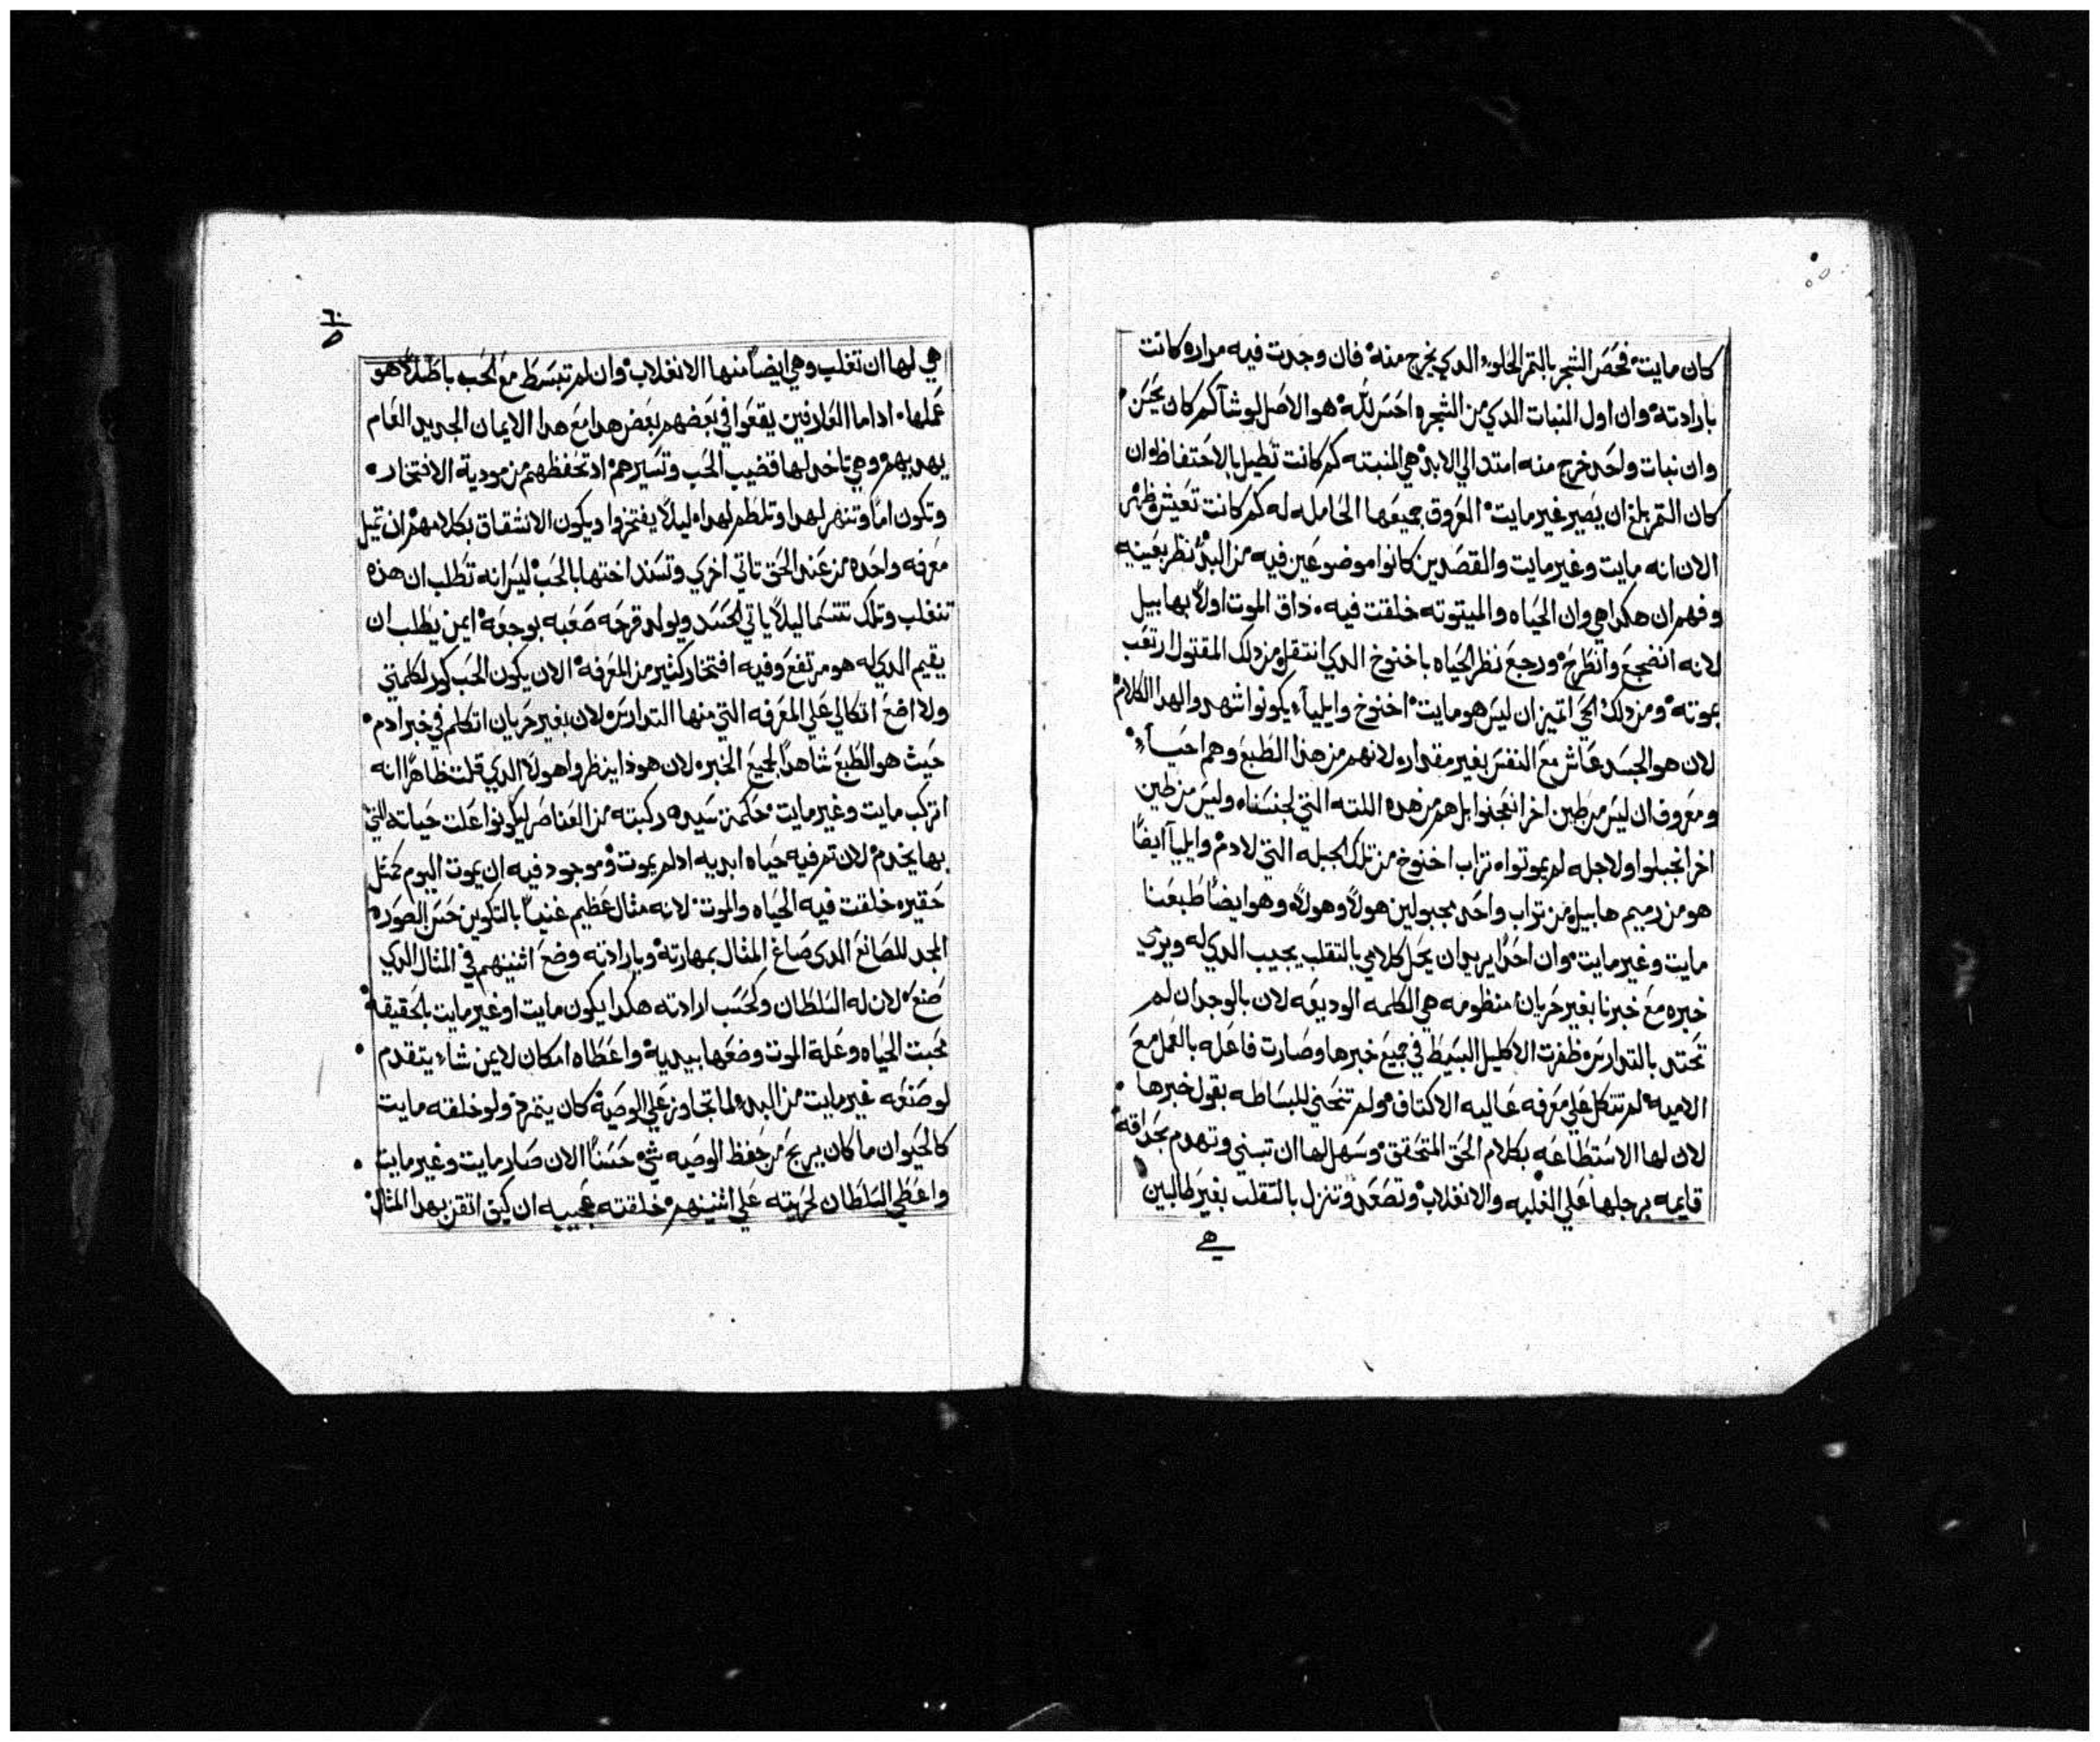 كان مايت فحص الشجر بالثمر الحلو الدي يخرج منه فان وجدت فيه مراره كانت
بارادته وان اول النبات الدي من الشجره احسن لله هو الاصل لو شا كم كان يحسن
وان نبات واحد خرج منه امتد الي الابد هي المنبته كم كانت تطيل بالاحتفاظ ان
كان الثمر بلغ ان يصير غير مايت العروق جميعها الحامله له كم كانت تعيش وظهر
الان انه مايت وغير مايت والقصدين كانوا موضوعين فيه من البدء نظر بعينيه
وفهم ان هكدا هي وان الحياه والميتوته خلقت فيه داق الموت اولا بهابيل
لانه انضجع وانطرح ورجع نظر الحياه باخنوخ الدي انتقل من دلك المقتول ارتعب
بموته ومن دلك الحي اتميز ان ليس هو مايت اخنوخ وايليآء يكونوا شهد والهدا الكلام
لان هو الجسد عاش مع النفس بغير مقدار ولانهم من هدا الطبع وهم احيآء
ومعروف ان ليس من طين اخر انعجنوا بل هم من هده اللته التي لجنسناه وليس من طين
اخر انجبلوا ولاجله لم يموتوا ه تراب اخنوخ من تلك الجبله التي لادم وايليآ ايضا
هو من رميم هابيل من تراب واحد مجبولين هولاء وهولاء وهو ايضا طبعنا
مايت وغير مايت وان احدا يريد ان يحل كلامي بالتقلب يجيب الدي له ويري
خبره مع خبرنا بغير حريان منظومه هي الكلمه الوديعه لان بالوجدان لم
تحتد بالتدارس ه ظفرت الاكليل البسيط في جميع خبرها وصارت فاعله بالعمل مع
الاميه لم تتكل علي معرفه عاليه الاكتاف ولم تنحني للبساطه بقول خبرها
لان لها الاستطاعه بكلام الحق المتحقق وسهل لها ان تبني وتهدم بحداقه
قايمه برجلها علي الغلبه والانغلاب وتصعد وتنزل بالتقلب بغير طالبين
هي
٦٠
هي لها ان تغلب وهي ايضا منها الانغلاب وان لم تبسط مع الحب باطلا هو
عملها ادا ما العلافين يقعوا في بعضهم بعض هدا مع هدا الايمان الجديد العام
يهديهم وهي تاخد لها قضيب الحب وتسيرهم اد تحفظهم من مودية الافتخار
وتكون اما وتنهر لهدا وتلطم لهدا ليلا يفتخروا ويكون الانشقاق بكلامهم ان تميل
معرفه واحده من عند الحق تاتي اخري وتسند اختها بالحب ليس انه تطلب ان هذه
تنغلب وتلك تتسما ليلا ياتي الحسد ويولد قرحه صعبه بوجعه ايمن يطلب ان
يقيم الدي له هو مرتفع وفيه افتخار كثير من المعرفه الان يكون الحب كور لكلمتي
ولا اضع اتكالي علي المعرفه التي منها التدارس ه لان بغير حريان اتكلم في خبر ادم
حيث هو الطبع شاهدا لجميع الخبره لان هوذا ينظروا هولاء الدي قلت ظاهرا انه
اتركب مايت وغير مايت محكمة سيده ركبته من العناصر ليكونوا علت حياته التي
بها يخدم لان ثم فيه حياه ابديه اد لم يموت وموجود فيه ان يموت اليوم كمثل
حقيره خلقت فيه الحياه والموت لانه مثال عظيم غنيا بالتكوين حسن الصوره
المجد للصانع الدي صاغ المثال بمهارته وبارادته وضع اثنينهم في المثال الدي
صنع لان له السلطان وكحسب ارادته هكدا يكون مايت او غير مايت بالحقيقه
محبت الحياه وعلة الموت وضعها بيديه واعطاه امكان لايمن شاء يتقدم
لو صنعه غير مايت من البدء لما تجاوز علي الوصيه كان يتمرد ولو خلقه مايت
كالحيوان ما كان يربح من حفظ الوصيه شي حسنا الان صار مايت وغير مايت
واعطي السلطان لحريته علي اثنينهم خلقته عجيبه ان كيف اتقن بهدا المثال